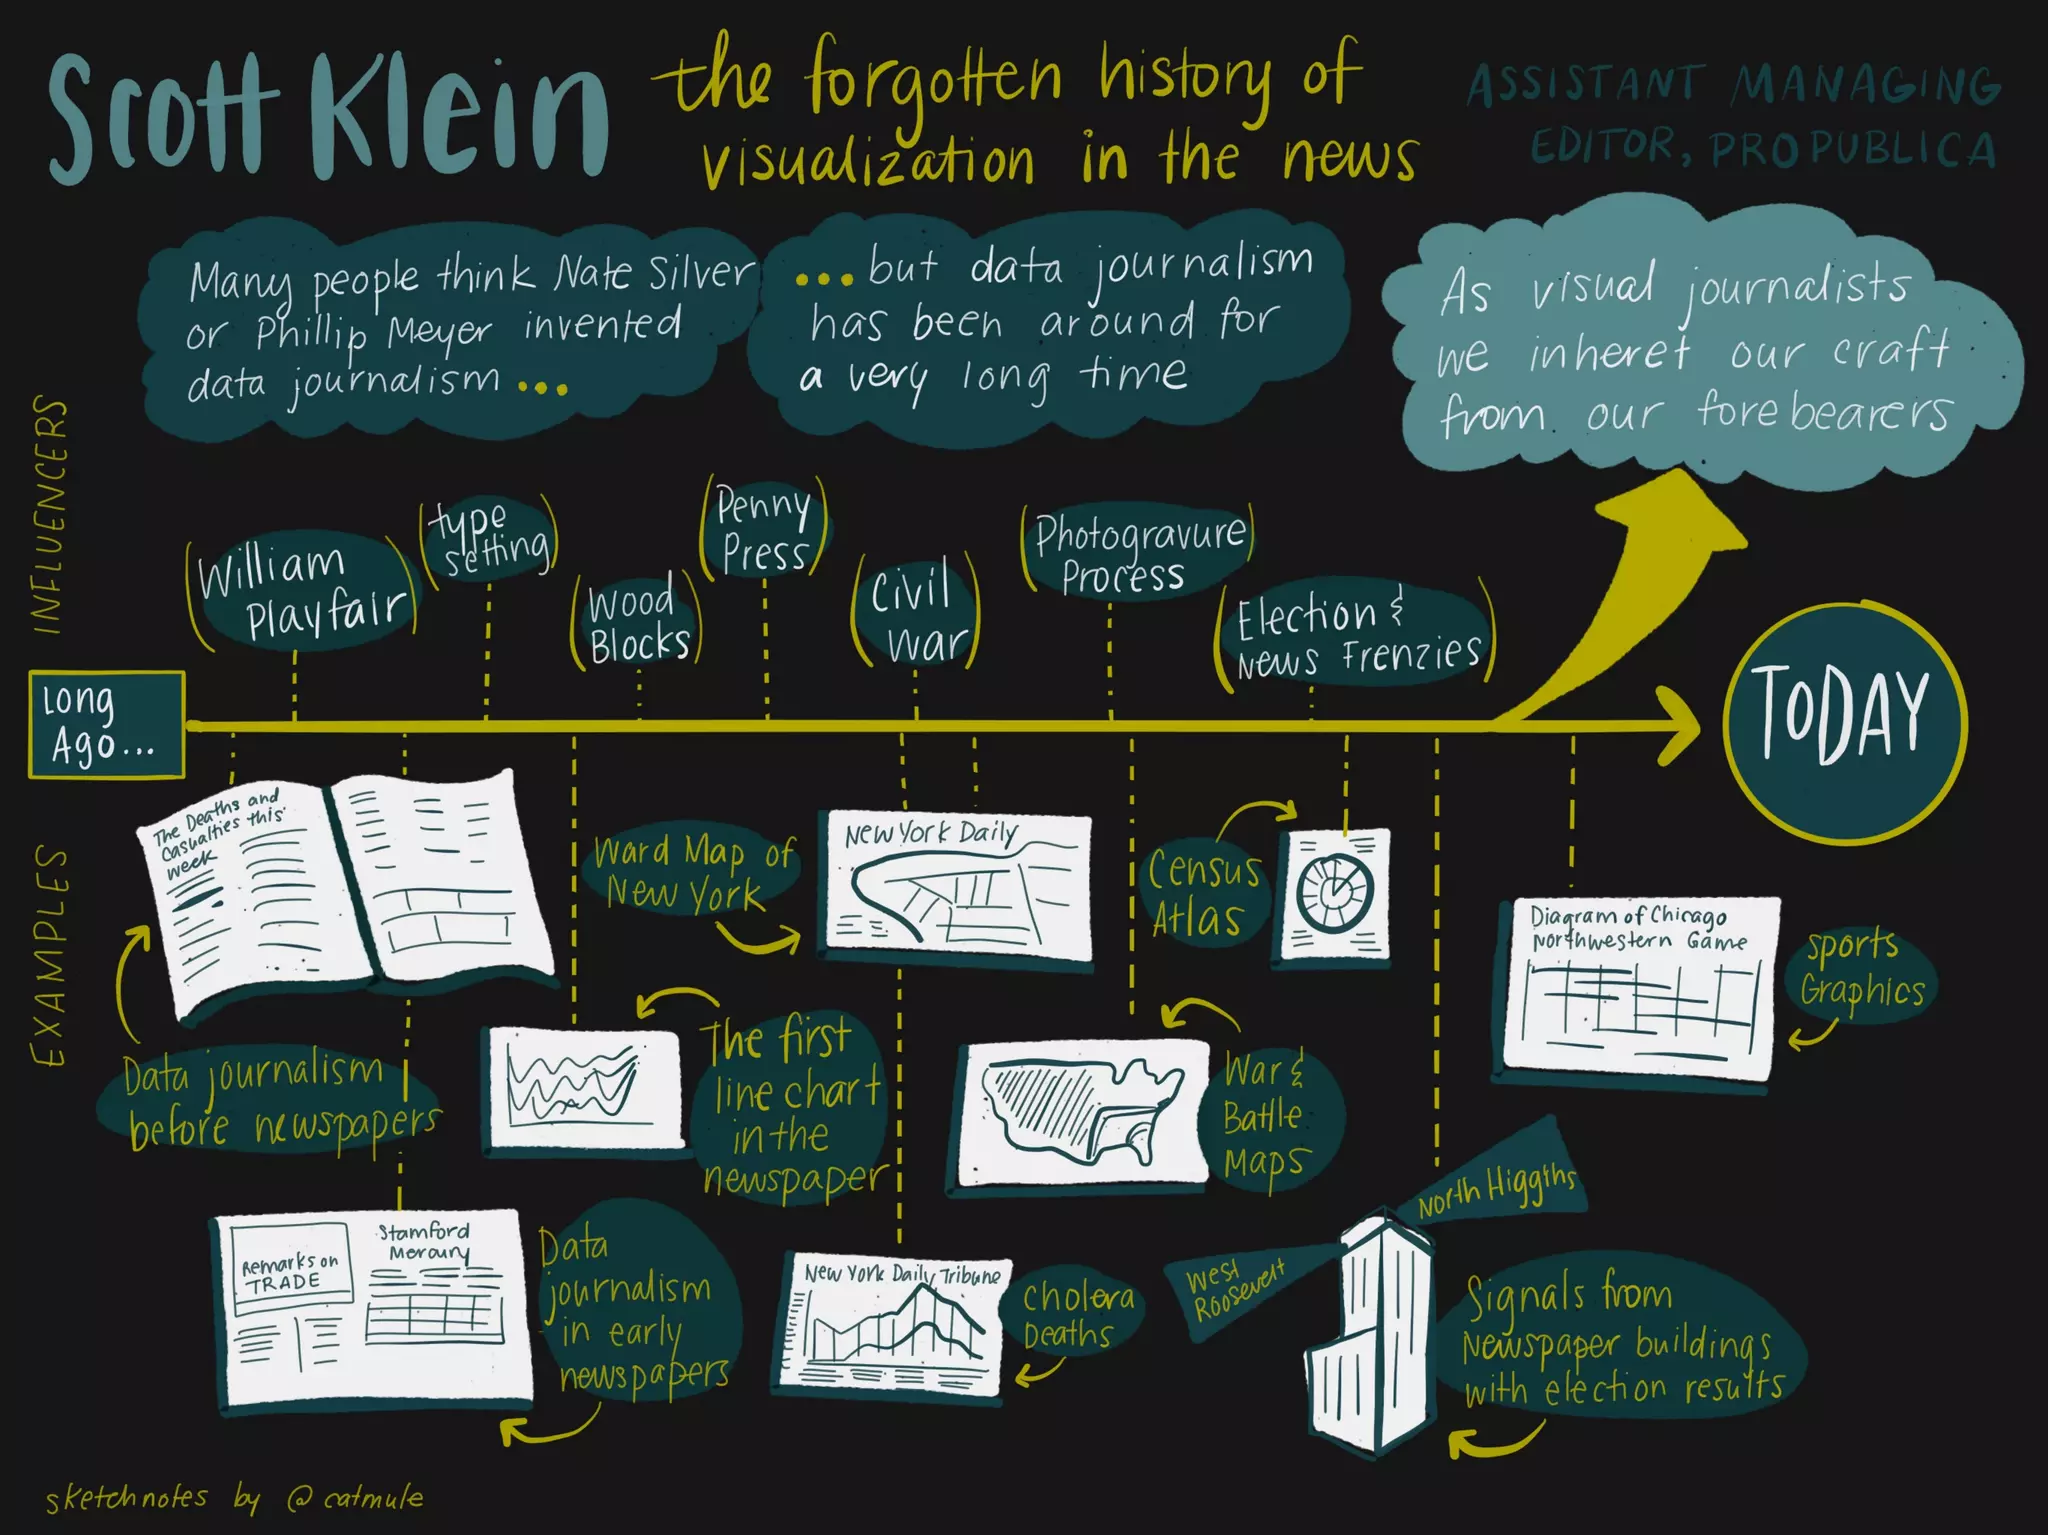 Scott Klein
the forgotten history of
visualization in the news
ASSISTANT MANAGING
EDITOR, PROPUBLICA
Many people think Nate Silver
or Phillip Meyer invented
data journalism ...
... but data journalism
has been around for
a very long time
As visual journalists
we inheret our craft
from our forebearers
INFLUENCERS
William
Playfair
type
setting
Wood
Blocks
Penny
Press
Civil
War
Photogravure
Process
Election &
News Frenzies
Long
Ago...
TODAY
EXAMPLES
The Deaths and
Casualties this
week
Data journalism
before newspapers
Remarks on
TRADE
Stamford
Mercury
Data
journalism
in early
newspapers
The first
line chart
in the
newspaper
Ward Map of
New York
New York Daily
New York Daily Tribune
Cholera
Deaths
War &
Battle
Maps
Census
Atlas
North Higgins
West
Roosevelt
Signals from
Newspaper buildings
with election results
Diagram of Chicago
Northwestern Game
Sports
Graphics
sketchnotes by @catmule